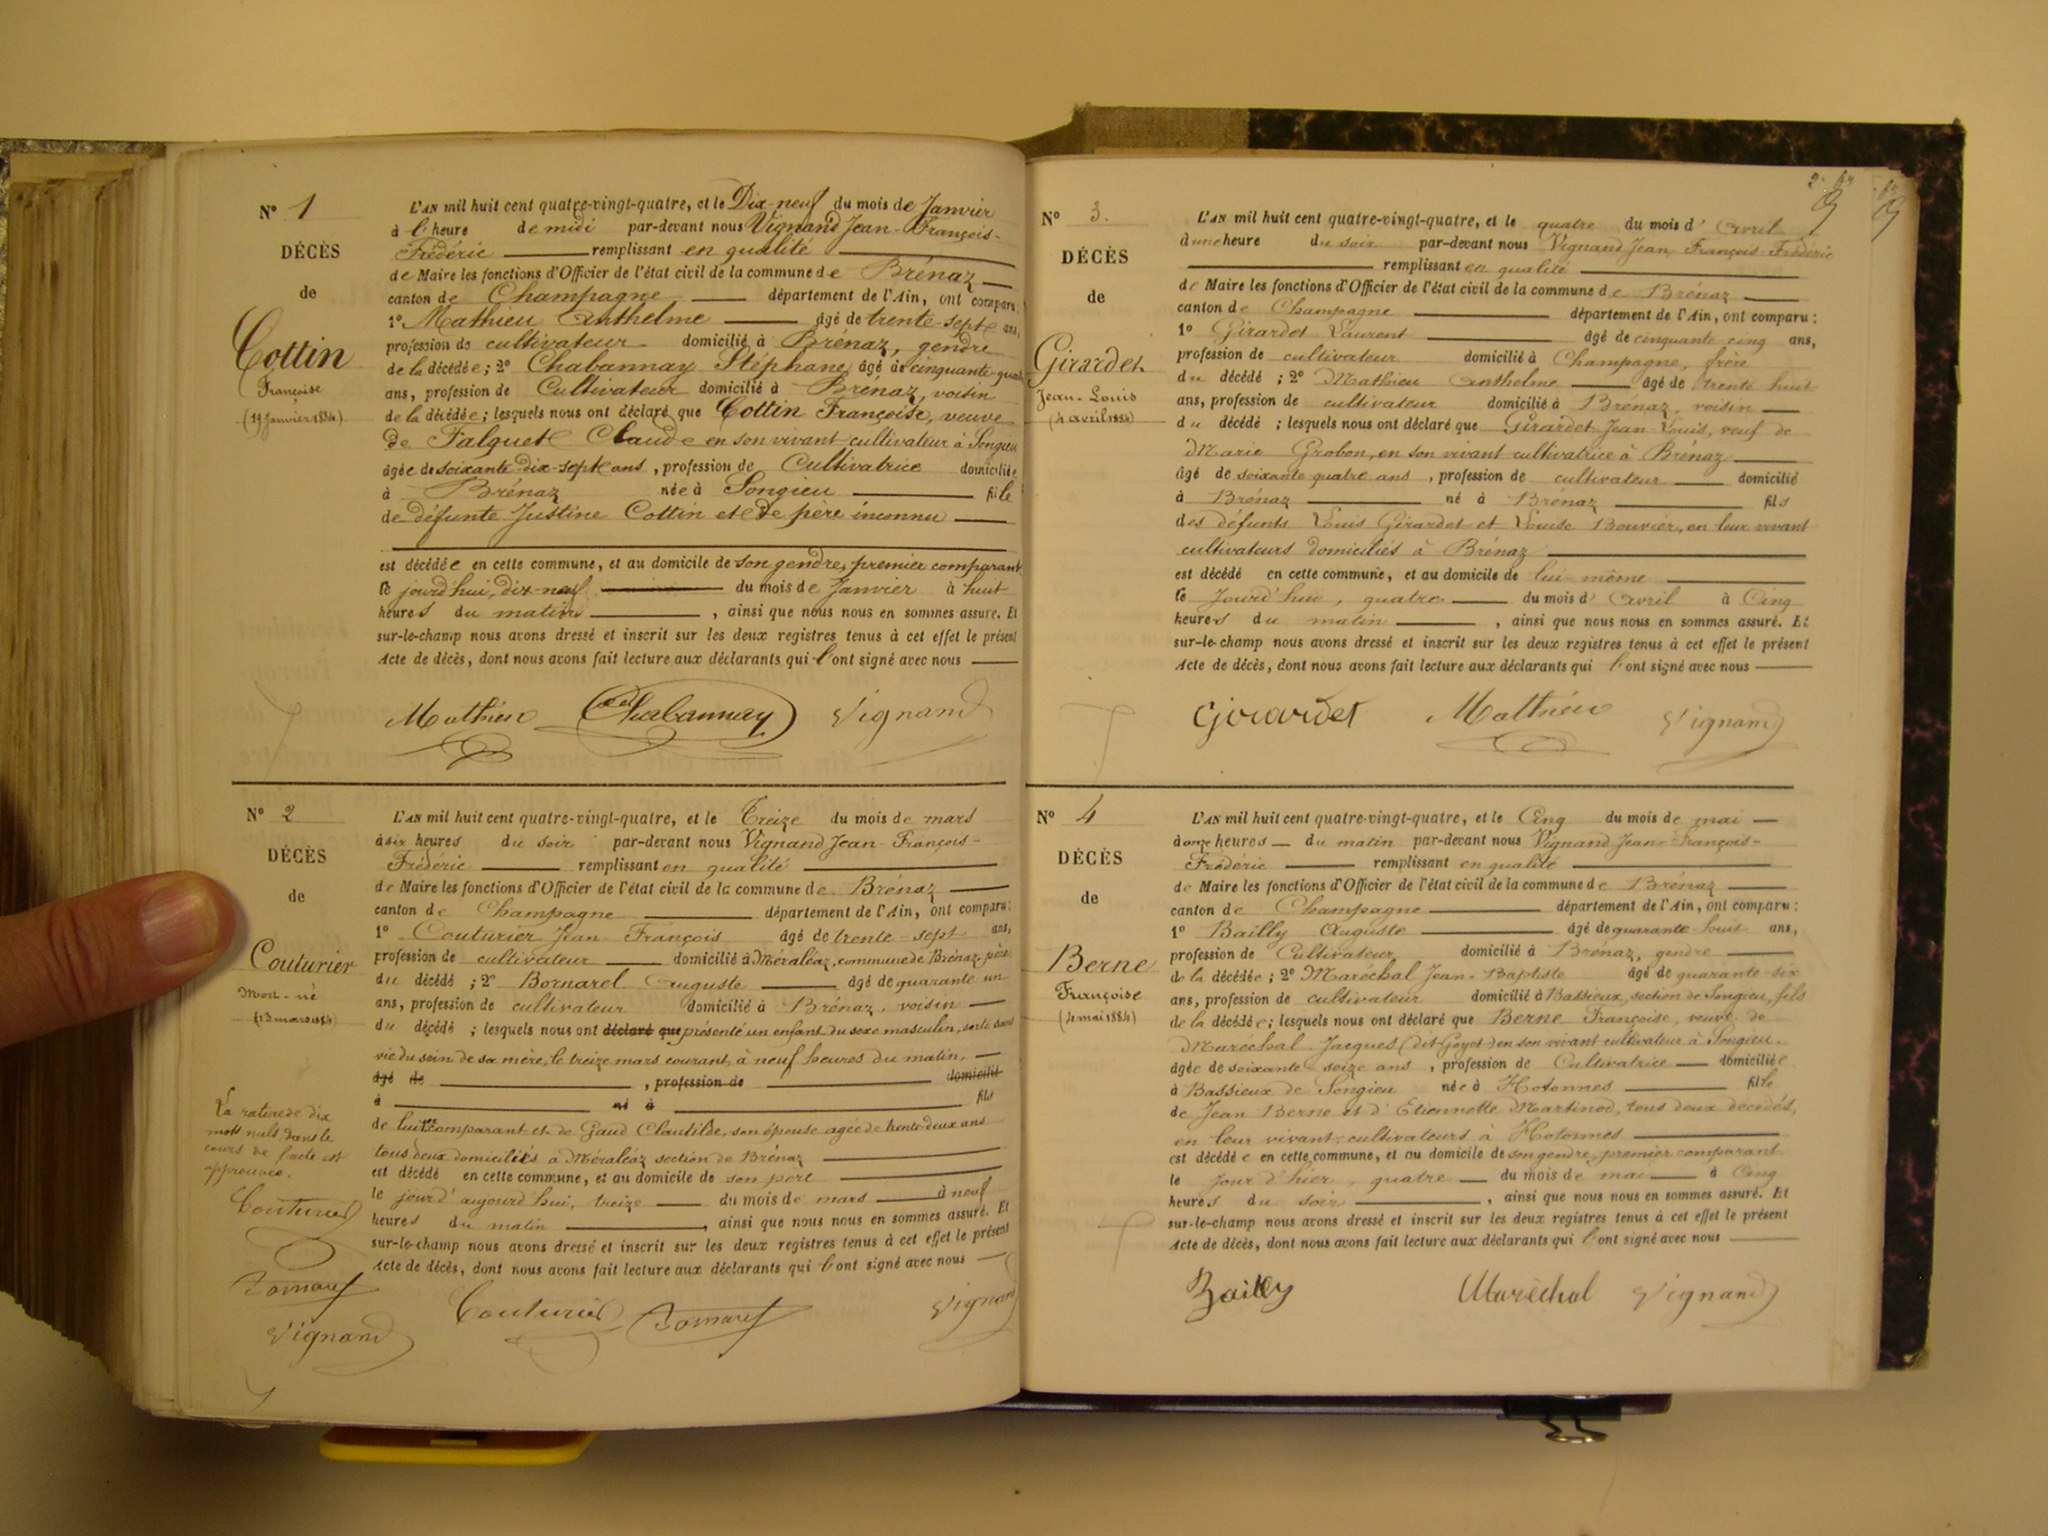 Nº 1
DÉCÈS
de
Cottin
Françoise
(19 Janvier 1884)
L'AN mil huit cent quatre-vingt-quatre, et le Dix-neuf du mois de Janvier
à l'heure de midi par-devant nous Vignand Jean-François-
Frédéric remplissant en qualité
de Maire les fonctions d'Officier de l'état civil de la commune de Brénaz
canton de Champagne département de l'Ain, ont comparu :
1º Mathieu Anthelme âgé de trente-sept ans,
profession de cultivateur domicilié à Brénaz, gendre
de la décédée ; 2º Chabannay Stéphane âgé de cinquante-quatre
ans, profession de Cultivateur domicilié à Brénaz, voisin
de la décédée ; lesquels nous ont déclaré que Cottin Françoise, veuve
de Falquet Claude en son vivant cultivateur à Songieu
âgée de soixante-dix-sept ans, profession de Cultivatrice domiciliée
à Brénaz née à Songieu fille
de défunte Justine Cottin et de père inconnu
est décédée en cette commune, et au domicile de son gendre, premier comparant
le jourd'hui, dix-neuf du mois de Janvier à huit
heures du matin, ainsi que nous nous en sommes assuré. Et
sur-le-champ nous avons dressé et inscrit sur les deux registres tenus à cet effet le présent
Acte de décès, dont nous avons fait lecture aux déclarants qui l'ont signé avec nous
Mathieu Chabannay Vignand
Nº 2
DÉCÈS
de
Couturier
Mort-né
(13 mars 1884)
L'AN mil huit cent quatre-vingt-quatre, et le Treize du mois de mars
à six heures du soir par-devant nous Vignand Jean-François-
Frédéric remplissant en qualité
de Maire les fonctions d'Officier de l'état civil de la commune de Brénaz
canton de Champagne département de l'Ain, ont comparu :
1º Couturier Jean François âgé de trente-sept ans,
profession de cultivateur domicilié à Méraléaz, commune de Brénaz, père
du décédé ; 2º Bornarel Auguste âgé de quarante un
ans, profession de cultivateur domicilié à Brénaz, voisin
du décédé ; lesquels nous ont déclaré que présenté un enfant du sexe masculin, sorti sans
vie du sein de sa mère, le treize mars courant, à neuf heures du matin,
âgé de , profession de domicilié
à né à fils
de lui 1er comparant et de Gaud Clautilde, son épouse agée de trente deux ans
tous deux domiciliés à Méraléaz section de Brénaz
est décédé en cette commune, et au domicile de son père
le jourd'aujourd'hui, treize du mois de mars à neuf
heures du matin, ainsi que nous nous en sommes assuré. Et
sur-le-champ nous avons dressé et inscrit sur les deux registres tenus à cet effet le présent
Acte de décès, dont nous avons fait lecture aux déclarants qui l'ont signé avec nous
La rature de dix
mots nuls dans le
cours de l'acte est
approuvée.
Couturier
Bornarel
Vignand
Couturier Bornarel Vignand
Nº 3.
DÉCÈS
de
Girardet
Jean-Louis
(4 Avril 1884)
L'AN mil huit cent quatre-vingt-quatre, et le quatre du mois d'Avril
à une heure du soir par-devant nous Vignand Jean François Frédéric
remplissant en qualité
de Maire les fonctions d'Officier de l'état civil de la commune de Brénaz
canton de Champagne département de l'Ain, ont comparu :
1º Girardet Laurent âgé de cinquante cinq ans,
profession de cultivateur domicilié à Champagne, frère
du décédé ; 2º Mathieu Anthelme âgé de trente huit
ans, profession de cultivateur domicilié à Brénaz, voisin
du décédé ; lesquels nous ont déclaré que Girardet Jean-Louis, veuf de
Marie Grobon, en son vivant cultivatrice à Brénaz
âgé de soixante quatre ans, profession de cultivateur domicilié
à Brénaz né à Brénaz fils
des défunts Louis Girardet et Louise Bouvier, en leur vivant
cultivateurs domiciliés à Brénaz
est décédé en cette commune, et au domicile de lui-même
le Jourd'hui, quatre du mois d'Avril à Cinq
heures du matin, ainsi que nous nous en sommes assuré. Et
sur-le-champ nous avons dressé et inscrit sur les deux registres tenus à cet effet le présent
Acte de décès, dont nous avons fait lecture aux déclarants qui l'ont signé avec nous
Girardet Mathieu Vignand
Nº 4
DÉCÈS
de
Berne
Françoise
(4 mai 1884)
L'AN mil huit cent quatre-vingt-quatre, et le Cinq du mois de mai
à onze heures du matin par-devant nous Vignand Jean-François-
Frédéric remplissant en qualité
de Maire les fonctions d'Officier de l'état civil de la commune de Brénaz
canton de Champagne département de l'Ain, ont comparu :
1º Bailly Auguste âgé de quarante huit ans,
profession de Cultivateur domicilié à Brénaz, gendre
de la décédée ; 2º Maréchal Jean-Baptiste âgé de quarante six
ans, profession de cultivateur domicilié à Bassieux, section de Songieu, fils
de la décédée ; lesquels nous ont déclaré que Berne Françoise, veuve de
Maréchal Jacques (dit Goyot) en son vivant cultivateur à Songieu.
âgée de soixante seize ans, profession de Cultivatrice domiciliée
à Bassieux de Songieu née à Hotonnes fille
de Jean Berne et d'Etiennette Martinod, tous deux décédés,
en leur vivant cultivateurs à Hotonnes
est décédée en cette commune, et au domicile de son gendre, premier comparant
le jour d'hier, quatre du mois de mai à Cinq
heures du soir, ainsi que nous nous en sommes assuré. Et
sur-le-champ nous avons dressé et inscrit sur les deux registres tenus à cet effet le présent
Acte de décès, dont nous avons fait lecture aux déclarants qui l'ont signé avec nous
Bailly Maréchal Vignand